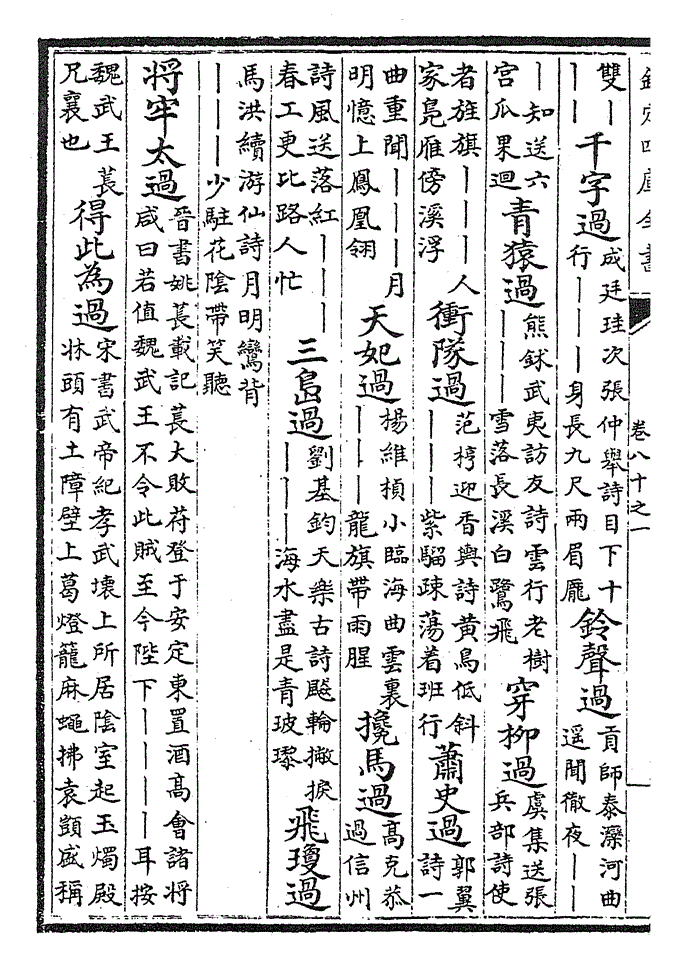 欽定四庫全書　卷八十之一
雙｜｜｜千字過成廷珪次張仲舉詩目下十行｜｜｜身長九尺兩眉厖鈴聲過貢師泰灤河曲遥聞徹夜｜｜
｜知送六宫瓜果迴青猿過熊鉌武夷訪友詩雲行老樹｜｜｜雪落長溪白鷺飛穿柳過虞集送張兵部詩使
者旌旗｜｜｜人家鳧雁傍溪浮衝隊過范梈迎香輿詩黄鳥低斜｜｜｜紫騮疎蕩着班行蕭史過郭翼詩一
曲重聞｜｜｜｜月明憶上鳳凰翎天妃過楊維楨小臨海曲雲裏｜｜｜龍旗帶雨腥攙馬過高克恭過信州
詩風送落紅｜｜｜春工更比路人忙三島過劉基鈞天樂古詩飈輪撇捩｜｜｜海水盡是青玻瓈飛瓊過
馬洪續游仙詩月明鸞背｜｜｜少駐花陰帶笑聽
将牢太過晉書姚萇載記萇大敗苻登于安定東置酒高會諸将咸曰若值魏武王不令此賊至今陛下｜｜｜｜耳按
魏武王萇兄襄也得此為過宋書武帝紀孝武壞上所居陰室起玉燭殿牀頭有土障壁上葛燈籠麻蠅拂袁顗盛稱